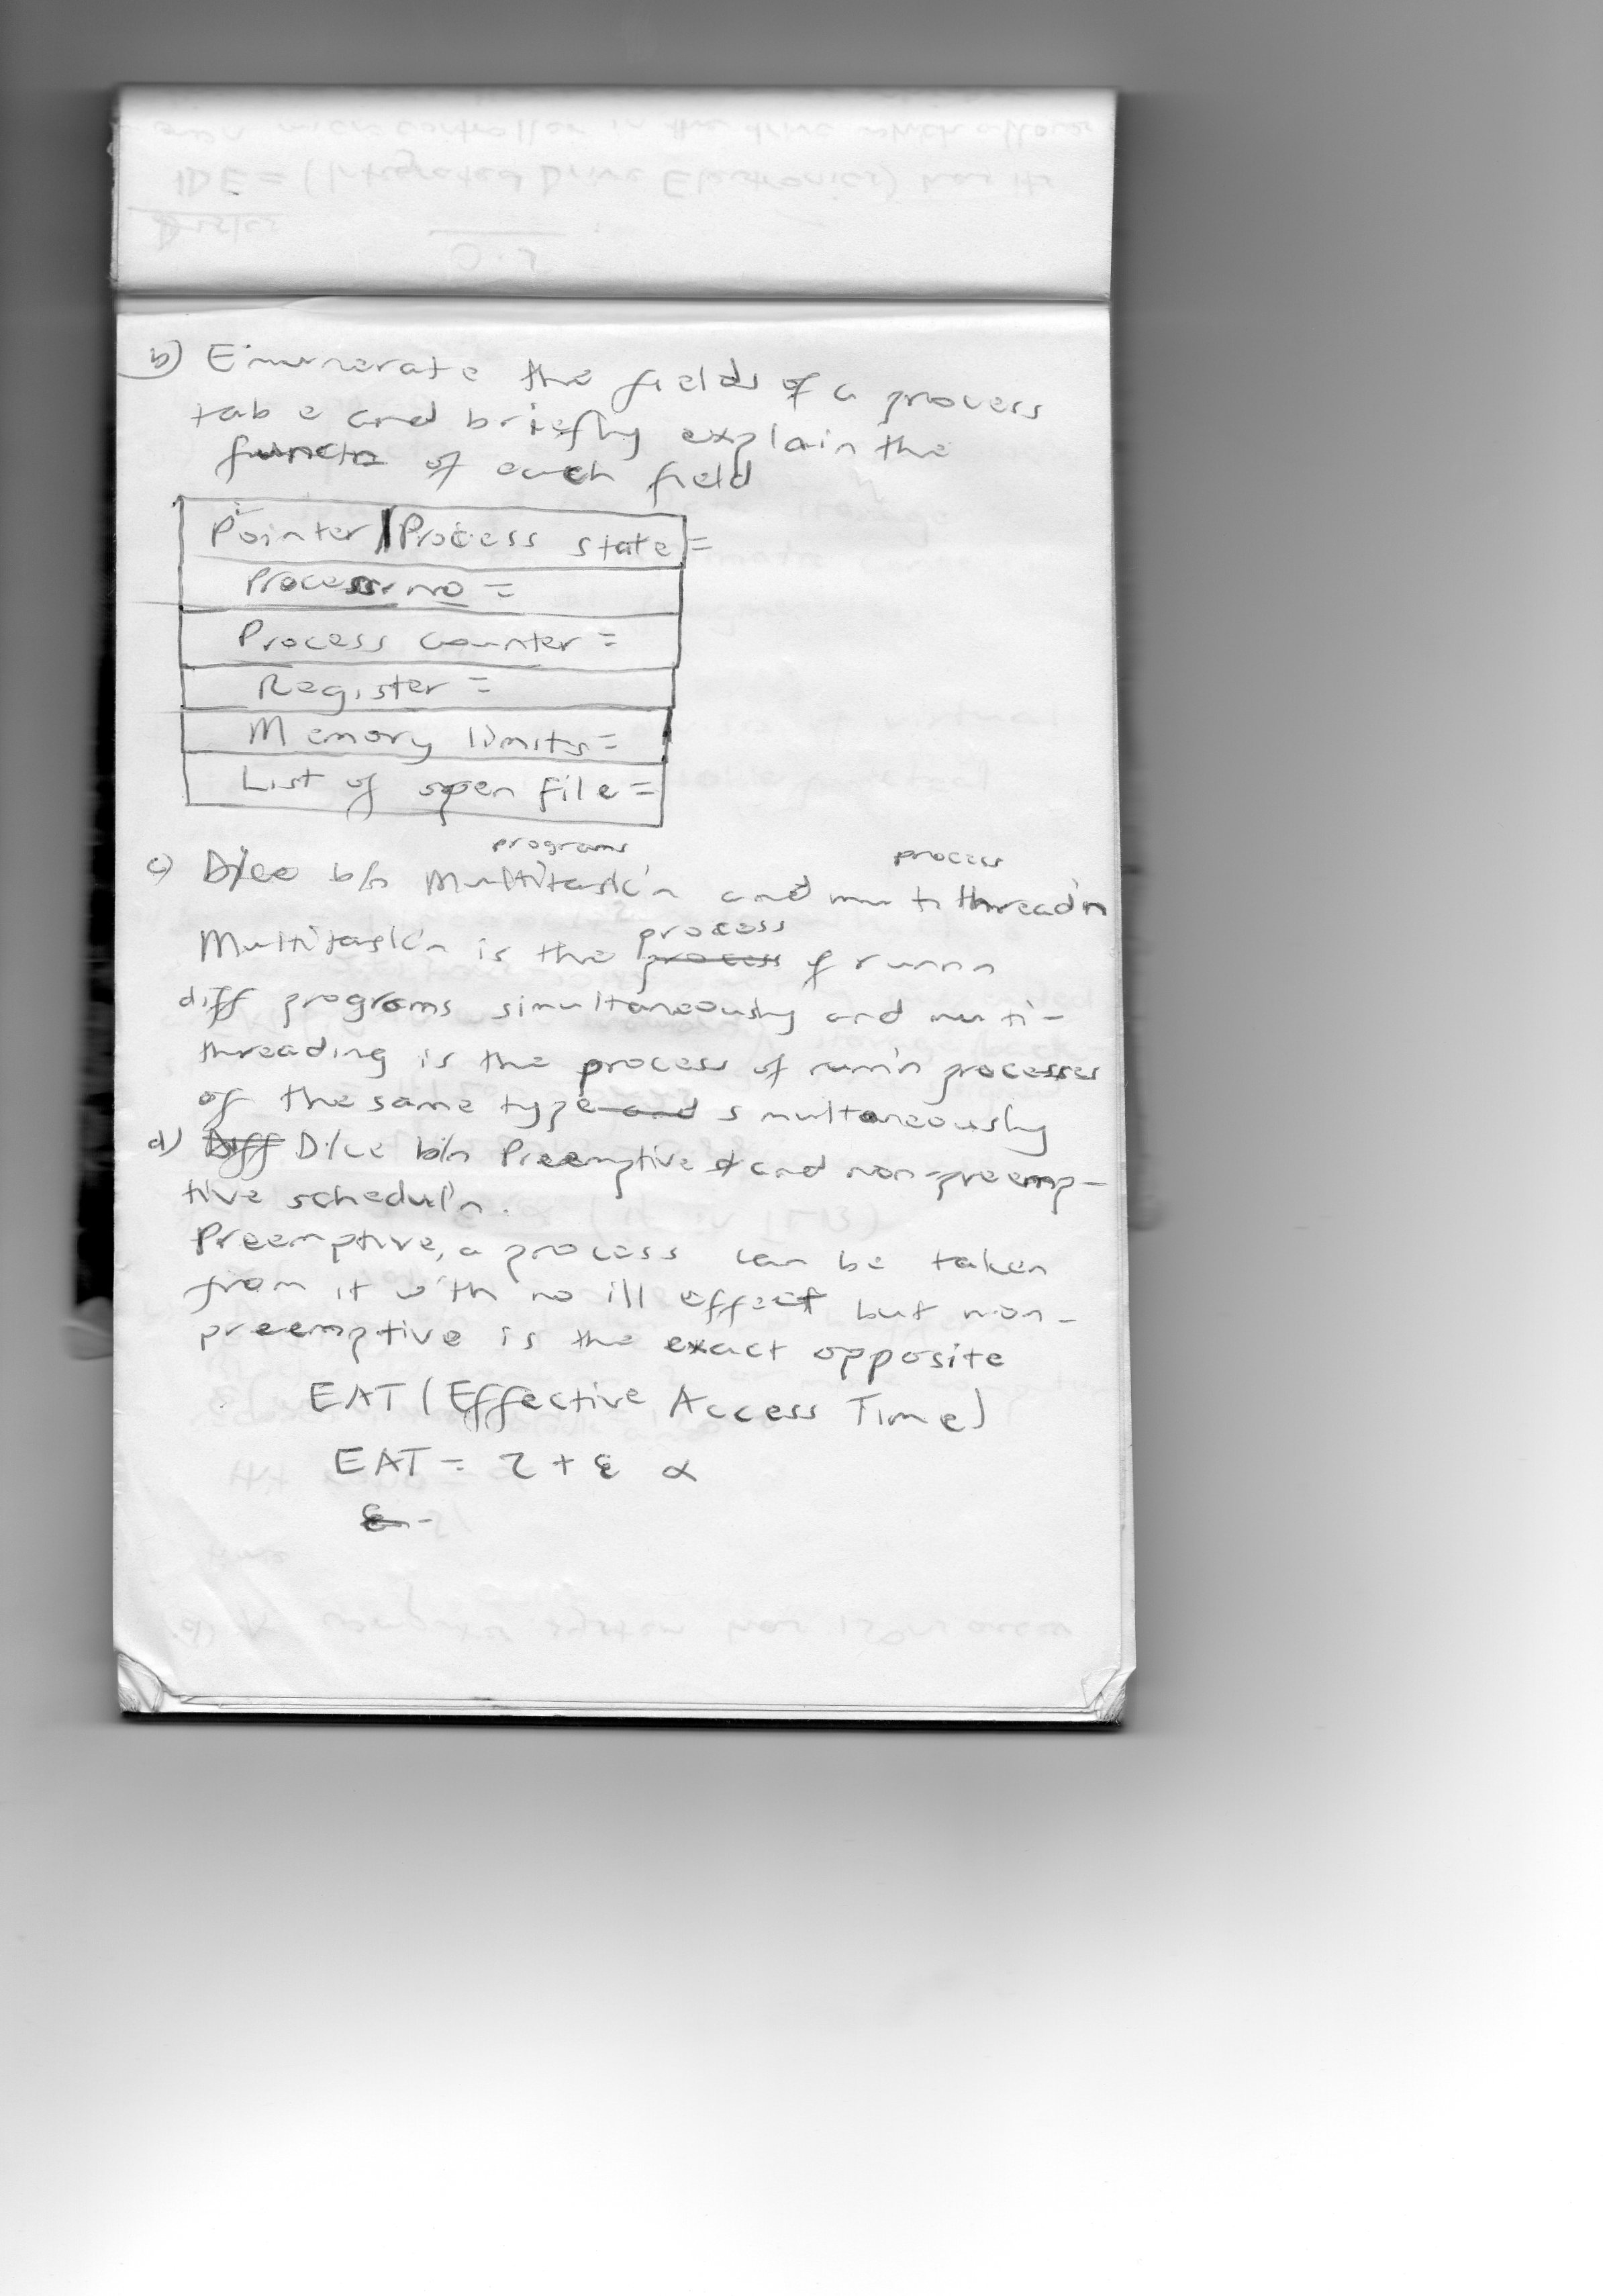 b) Enumerate the fields of a process
tab e and briefly explain the
functn of each field
Pointer | Process state =
Process no =
Process counter =
Register =
Memory limits =
List of open file =
programs process
c) D/ce b/n Multitask'n and mu ti thread'n
process
Multitask'n is the process of runnn
diff programs simultaneously and mu ti-
threading is the process of runn'n processes
of the same type and s multaneously
d) Diff D/ce b/n Preemptive & and non-preemp-
tive schedul'n.
Preemptive, a process can be taken
from it with no ill effect but non-
preemptive is the exact opposite
EAT (Effective Access Time)
EAT = 2 + ε α
ε -